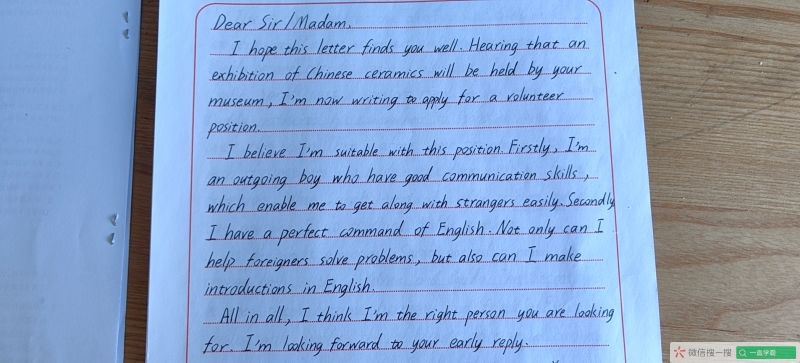 Dear Sir/Madam,
I hope this letter finds you well. Hearing that an
exhibition of Chinese ceramics will be held by your
museum, I'm now writing to apply for a volunteer
position.
I believe I'm suitable with this position. Firstly, I'm
an outgoing boy who have good communication skills,
which enable me to get along with strangers easily. Secondly
I have a perfect command of English. Not only can I
help foreigners solve problems, but also can I make
introductions in English.
All in all, I think I'm the right person you are looking
for. I'm looking forward to your early reply.
微信搜一搜